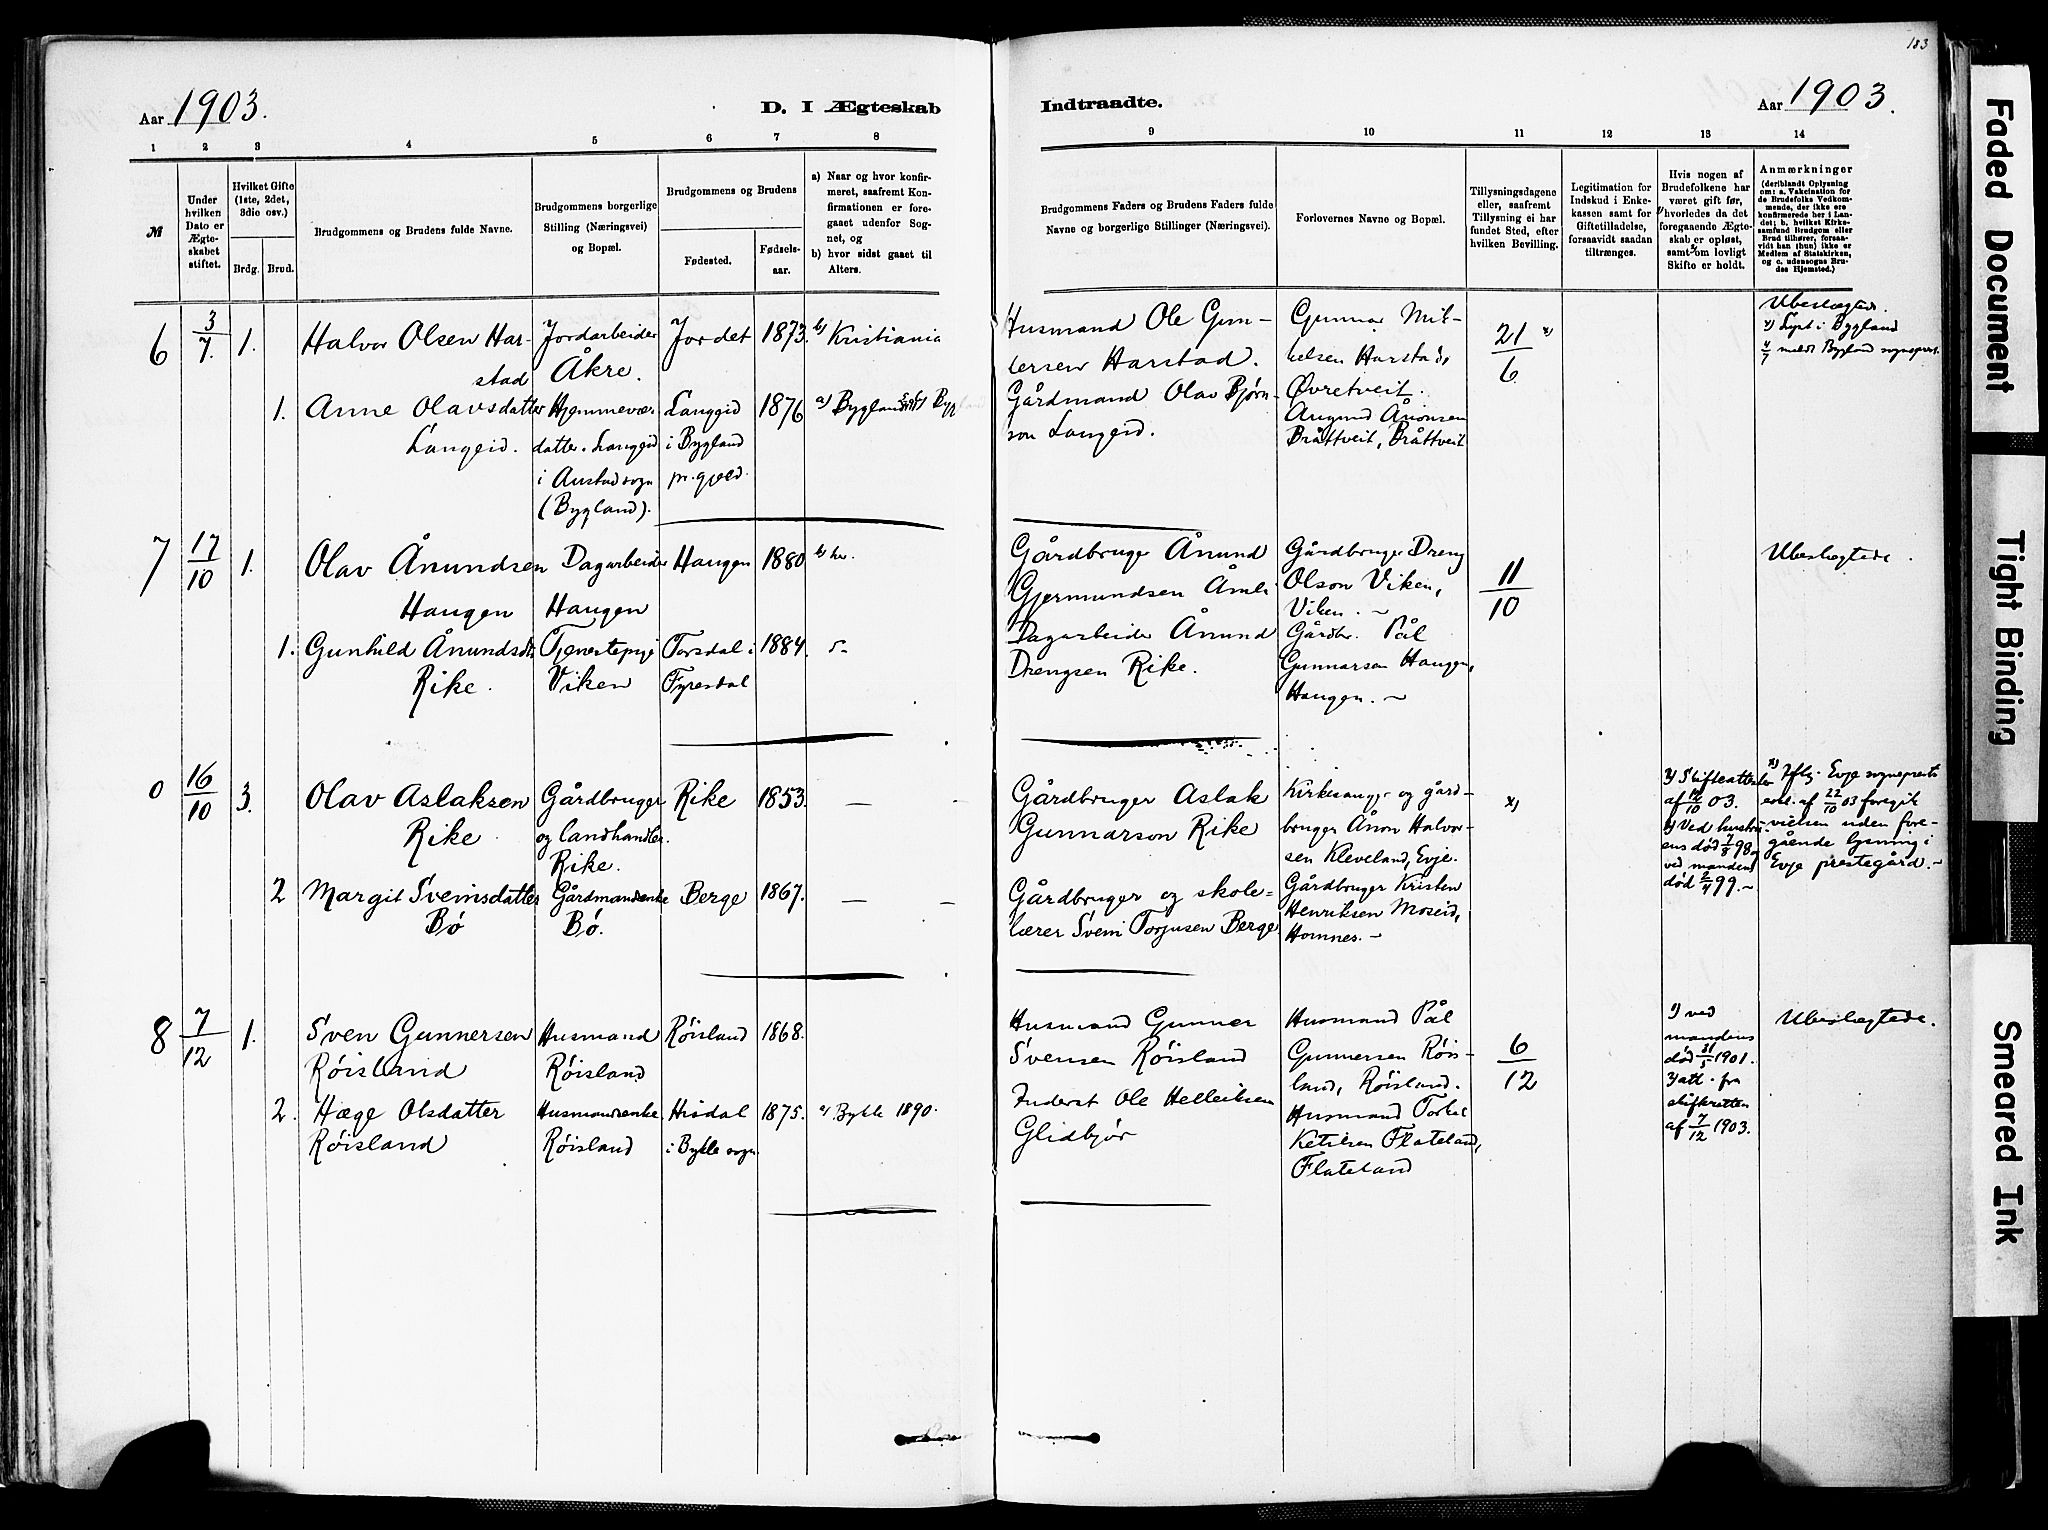 183
Aar 1903.
D. I Ægteskab
Indtraadte.
Aar 1903.
1 2 3 4 5 6 7 8
9 10 11 12 13 14
№
Under hvilken Dato er Ægteskabet stiftet.
Hvilket Gifte (1ste, 2det, 3die osv.)
Brdg. Brud.
Brudgommens og Brudens fulde Navne.
Brudgommens borgerlige Stilling (Næringsvei) og Bopæl.
Brudgommens og Brudens
Fødested.
Fødselsaar.
a) Naar og hvor konfirmeret, saafremt Konfirmationen er foregaaet udenfor Sognet, og
b) hvor sidst gaaet til Alters.
Brudgommens Faders og Brudens Faders fulde Navne og borgerlige Stillinger (Næringsvei).
Forlovernes Navne og Bopæl.
Tillysningsdagene eller, saafremt Tillysning ei har fundet Sted, efter hvilken Bevilling.
Legitimation for Indskud i Enkekassen samt for Giftetilladelse, forsaavidt saadan tiltrænges.
Hvis nogen af Brudefolkene har været gift før, 1) hvorledes da det foregaaende Ægteskab er opløst, samt 2) om lovligt Skifte er holdt.
Anmærkninger
(deriblandt Oplysning om: a. Vakcination for de Brudefolks Vedkommende, der ikke ere konfirmerede her i Landet; b. hvilket Kirkesamfund Brudgom eller Brud tilhører, forsaavidt han (hun) ikke er Medlem af Statskirken, og c. udensogns Brudes Hjemsted.)
6 3/7. 1.
Halvor Olsen Harstad
Jordarbeider
Åkre.
Jordet
1873.
b) Kristiania
Husmand Ole Gunlersen Harstad.
Gunnar Mikkelsen Harstad,
Øvretveit.
21/6 x)
Ubeslægtede.
x) Lyst i Bygland
4/7 meldt Bygland sogneprest.
1.
Anne Olavsdatter
Langeid.
Hjemmeværdatter. Langeid
i Austad sogn
(Bygland).
Langeid
i Bygland
pr.gjeld.
1876
a) Bygland
Gårdmand Olav Bjørnson Langeid.
Augund Ånonsen
Bråttveit, Bråttveit
7 17/10 1.
Olav Ånundsen
Haugen
Dagarbeider
Haugen
Haugen
1880
b) her.
Gårdbruger Ånund
Gjermundsen Åmli
Gårdbruger Dreng
Olson Viken,
Viken. ~
11/10
Ubeslegtede.
1.
Gunhild Ånundsdtr.
Rike.
Tjenestepige
Viken
Torsdal i
Fyresdal
1884.
Dagarbeider Ånund
Drengsen Rike.
Gårdbr. Pål
Gunnarson Haugen,
Haugen. ~
0 16/10 3.
Olav Aslaksen
Rike
Gårdbruger
og landhandler.
Rike.
Rike
1853.
—
Gårdbruger Aslak
Gunnarson Rike
Kirkesanger og gårdbruger Ånon Halvorsen Kleveland, Evje.
x)
2) Skifteattester
af 12/10 03.
1) Ved hustruens død 7/8 98,
ved mandens
død 2/4 99. ~
x) Iflg. Evje sogneprests
erkl. af 22/10 03 foregik
vielsen uden foregående lysning i
Evje prestegård. ~
2
Margit Sveinsdatter
Bø
Gårdmandsenke
Bø.
Berge
1867.
—
Gårdbruger og skolelærer Svein Torjusen Berge
Gårdbruger Kristen
Henriksen Moseid,
Hornnes. ~
8 7/12 1.
Sven Gunnersen
Røisland
Husmand
Røisland
Røisland
1868.
Husmand Gunner
Svensen Røisland
Husmand Pål
Gunnersen Røisland, Røisland.
6/12
1) ved
mandens
død 31/5 1901.
2) att. fra
skifteretten
af 7/12 1903.
Ubeslegtede.
2.
Hæge Olsdatter
Røisland
Husmandsenke
Røisland
Hisdal
i Bykle sogn
1875.
a) Bykle 1890.
Inderst Ole Helleiksen
Glidbjør
Husmand Torkel
Ketilsen Flateland,
Flateland
Faded Document
Tight Binding
Smeared Ink